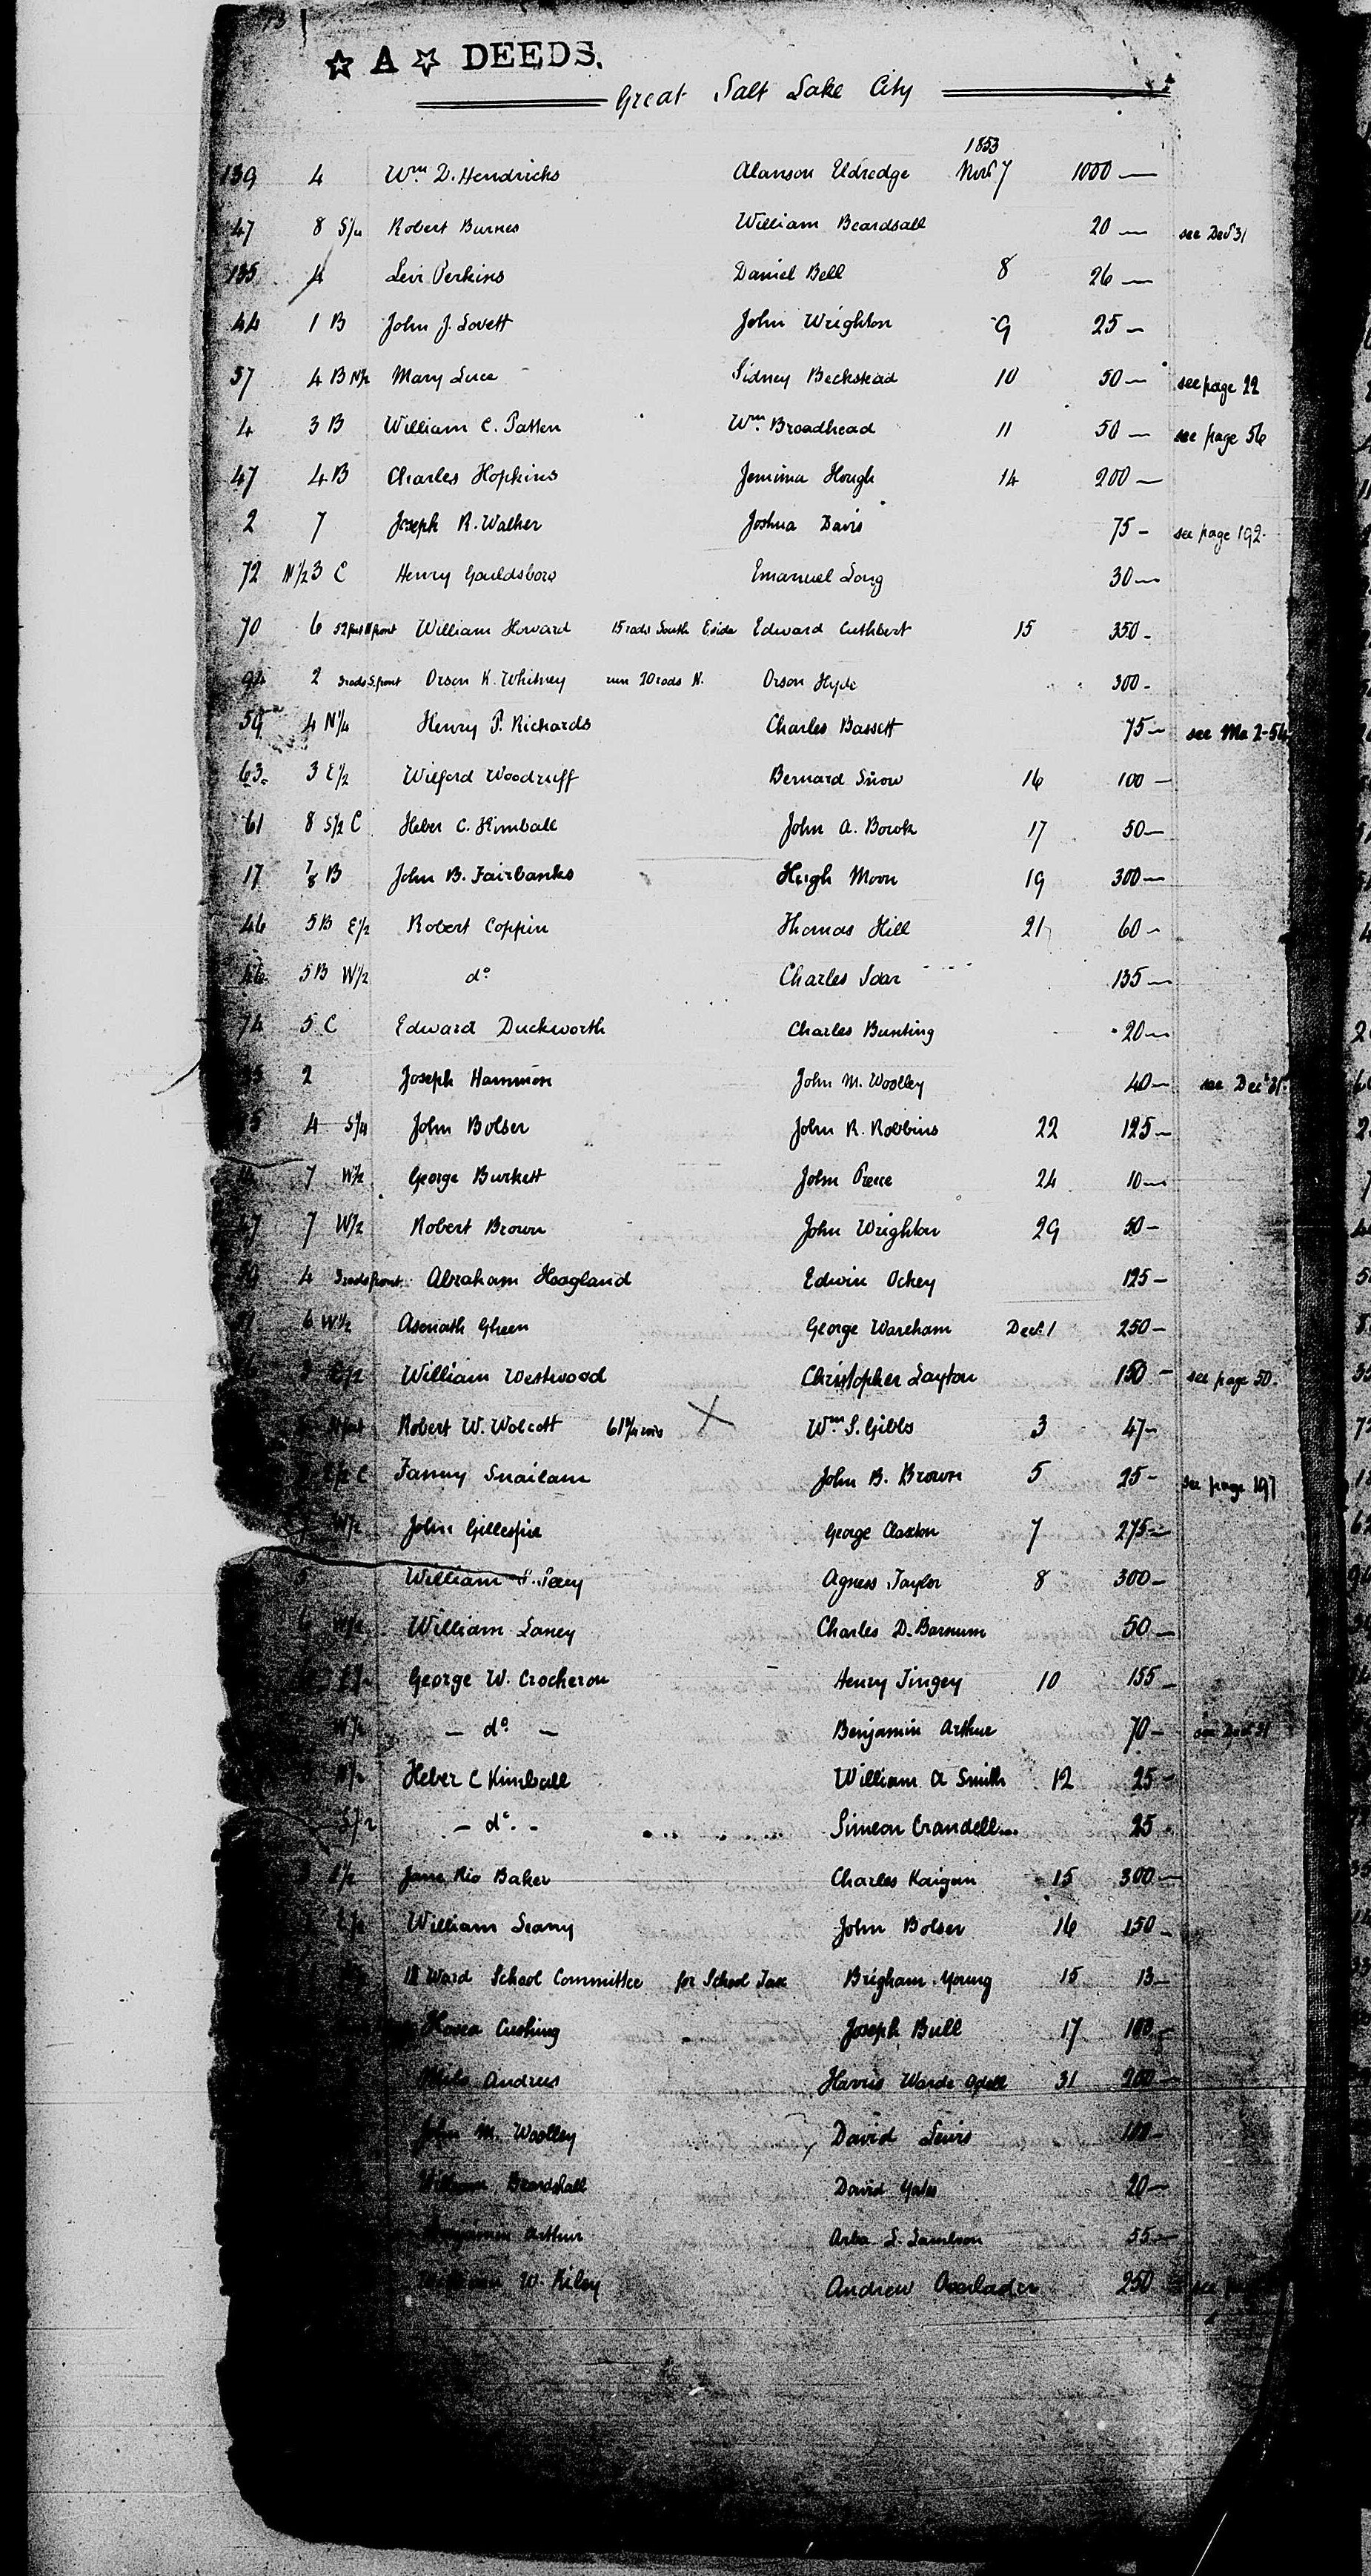 ☆ A ☆ DEEDS.
Great Salt Lake City
1853
139 4 Wm D. Hendricks Alanson Eldredge Novr 7 1000 —
47 8 S¼ Robert Burnes William Beardsall 20 — see Decr 31
135 4 Levi Perkins Daniel Bell 8 26 —
44 1 B John J. Lovett John Wrighton 9 25 —
57 4 B N½ Mary Luce Sidney Beckstead 10 50 — see page 22
4 3 B William C. Patten Wm Broadhead 11 50 — see page 56
47 4 B Charles Hopkins Jemima Hough 14 200 —
2 7 Joseph R. Walker Joshua Davis 75 - see page 192
72 N½ 3 C Henry Gouldsboro Emanuel Long 30 —
70 6 52 feet N front William Howard 15 rods South E side Edward Cuthbert 15 350 -
94 2 3 rods S. front Orson K. Whitney run 20 rods N. Orson Hyde 300 -
59 4 N¼ Henry P. Richards Charles Bassett 75 — see Ma 2-54
63 3 E½ Wilford Woodruff Bernard Snow 16 100 —
61 8 S½ C Heber C. Kimball John A. Bouck 17 50 —
17 7 8 B John B. Fairbanks Hugh Moon 19 300 —
46 5 B E½ Robert Coppin Thomas Hill 21 60 -
46 5 B W½ do Charles Idar 135 —
74 5 C Edward Duckworth Charles Bunting 20 —
2 Joseph Hammon John M. Woolley 40 — see Decr 31
5 4 S¼ John Bolser John R. Robbins 22 125 —
7 W½ George Burkett John Preece 24 10 —
47 7 W½ Robert Brown John Wrighton 29 50 -
4 3 rods front Abraham Hoagland Edwin Ockey 125 -
6 W½ Asenath Gheen George Wareham Decr 1 250 -
William Westwood Christopher Layton 150 - see page 50.
Robert W. Wolcott X Wm S. Gibbs 3 47 -
C Fanny Snailam John B. Brown 5 25 - see page 197
W½ John Gillespie George Claxton 7 275 —
William S. Agness Taylor 8 300 -
William Laney Charles D. Barnum 50 —
George W. Crocheron Henry Tingey 10 155 -
W½ — do — Benjamin Arthur 70 - see Decr 31
Heber C Kimball William A Smith 12 25 -
S½ - do. - Simeon Crandell 25 -
Jane Rio Baker Charles Kaigin 15 300 —
William Seamy John Bolser 16 150 -
Ward School Committee for School Tax Brigham Young 15 13 -
Hosea Cushing Joseph Bull 17 100 -
Milo Andrus Harris Warde Odell 31 200 —
John M. Woolley David Lewis 100 -
William Beardshall David Yates 20 —
Benjamin Arthur Arba L. Lambson 55 —
W. Kiley Andrew Overlader 250 see